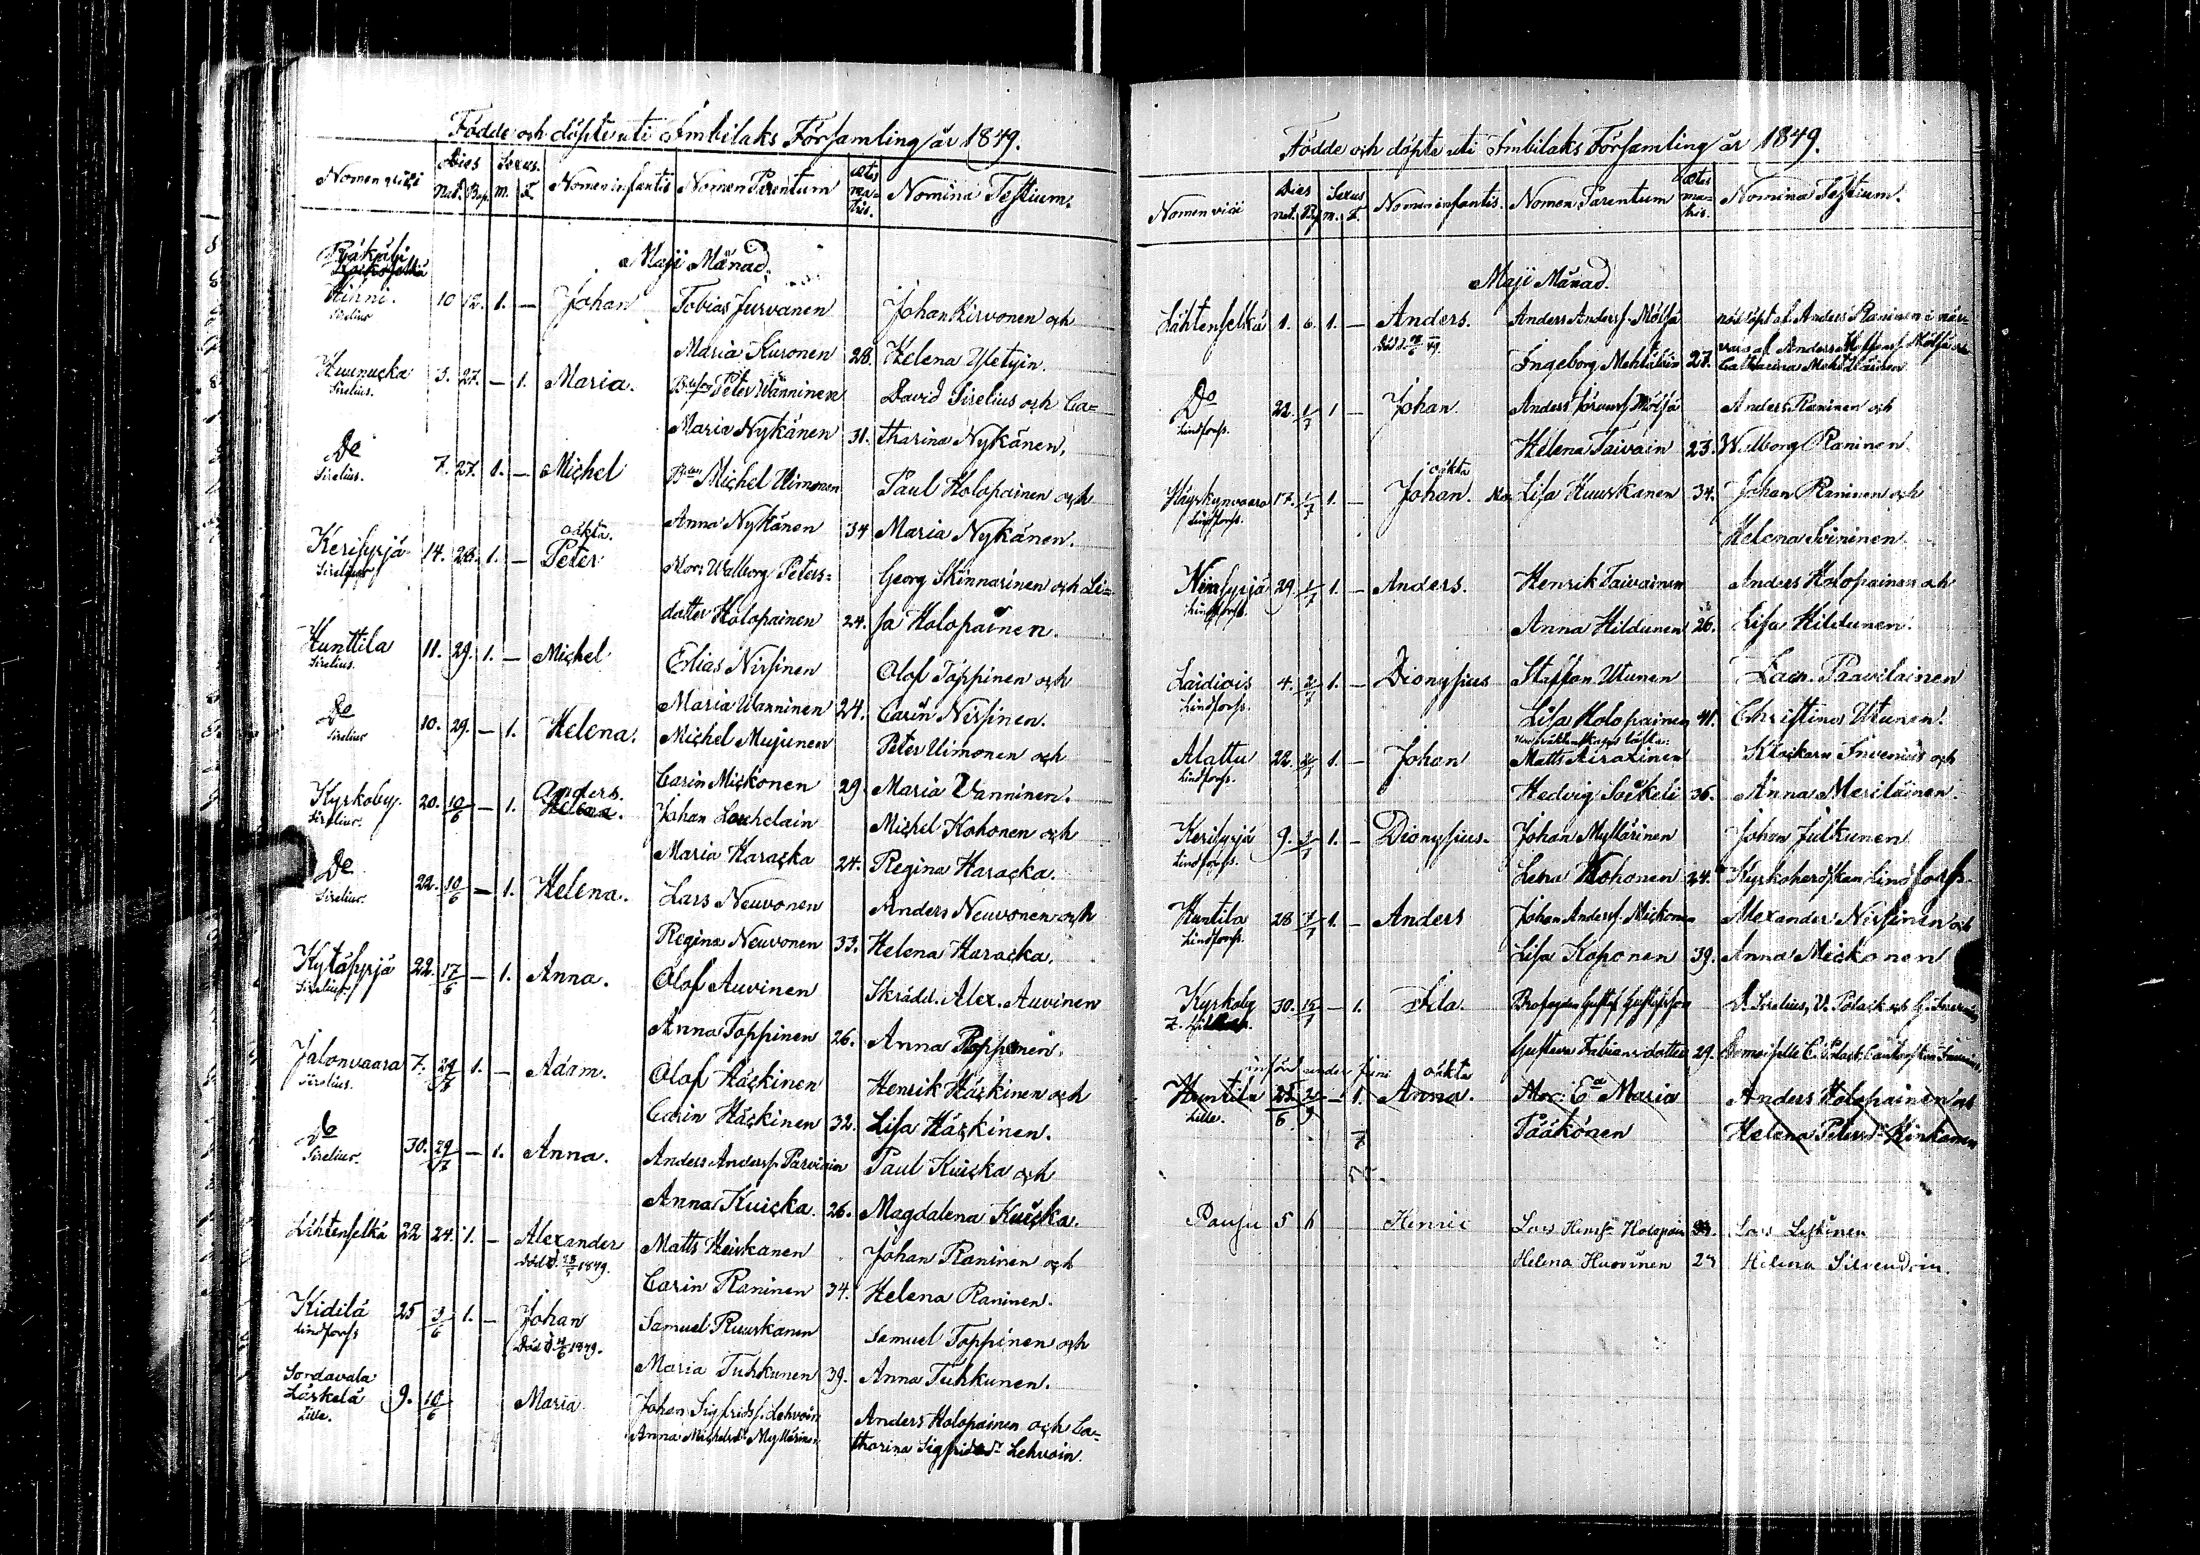 Födde och döpte uti Imbilaks Församling år 1849.
Nomen vici Dies Nat. Bap. Sexus. m. f. Nomen infantis Nomen Parentum ætas matris. Nomina Testium.
Maji Månad.
Hihni. 10 12. 1. — Johan Tobias Jurvanen Johan Kirvonen och
Sirelius
Maria Kuronen 28. Helena
Huunucka 3. 27. — 1. Maria. Peter Wänninen David Sirelius och Ca=
Sirelius.
Maria Nykänen 31. tharina Nykänen.
Do 7. 27. 1. — Michel Michel Uimonen Paul Holopainen och
Sirelius.
Anna Nykänen 34 Maria Nykänen.
oäkta.
Kerisyrjä 14. 28. 1. — Peter Mor: Walborg Peters= Georg Skinnarinen och Li=
Sirelius
dotter Holopainen 24. sa Holopainen.
Hunttila 11. 29. 1. — Michel Elias Nissinen Olof Toppinen och
Sirelius.
Maria Wanninen 24. Carin Nissinen.
Do 10. 29. — 1. Helena. Michel Mujunen Peter Uimonen och
Sirelius
Carin Mickonen 29 Maria Vanninen.
Anders.
Kyrkoby. 20. 10/6 — 1. Helena. Johan Louhelain Michel Kohonen och
Sirelius.
Maria Haracka 24. Regina Haracka.
Do 22. 10/6 — 1. Helena. Lars Neuvonen Anders Neuvonen och
Sirelius.
Regina Neuvonen 33. Helena Haracka.
Kytösyrjä 22. 17/6 — 1. Anna. Olof Auvinen Skrädd. Alex. Auvinen
Sirelius
Anna Toppinen 26. Anna Toppinen.
Jalonvaara 7. 29/7 1. — Adam. Olof Häckinen Henrik Häckinen och
Sirelius.
Carin Häckinen 32. Lisa Häckinen.
Do 30. 29/7 — 1. Anna. Anders Anderss. Parviain Paul Kuicka och
Sirelius.
Anna Kuicka. 26. Magdalena Kuicka.
Lähtenselkä 22 24. 1. — Alexander Matts Heiskanen Johan Raninen och
Död d. 1849.
Carin Raninen 34. Helena Raninen.
Kidilä 25 3/6 1. — Johan Samuel Ruuskanen Samuel Toppinen och
Lindforss
Död d. 1849.
Maria Tuhkunen 39. Anna Tuhkunen.
Sordavala
Läskelä 9. 10/6 Maria Johan Sigfridss. Lehvoin Anders Holopainen och Ca=
Lille.
Anna Michelsdr Myllärinen tharina Sigfridsdr Lehvoin.
Födde och döpte uti Imbilaks Församling år 1849.
Nomen vici Dies nat. Bap Sexus m. f. Nomen infantis. Nomen Parentum ætas matris. Nomina Testium.
Maji Månad.
Lähtenselkä 1. 6. 1. — Anders. Anders Anderss. Mölsä nöddöpt af Anders Raninen i när-
varo af Anders Mölsä och
Ingeborg Mehtäläin 27. Catharina Mehtäläinen
Do 22. 1/7 1 — Johan. Anders Mölsä Anders Raninen och
Lindforss.
Helena Taivain 23. Walborg Raninen.
oäkta
17. 1/7 1. — Johan. Mor Lisa Huuskanen 34. Johan Raninen och
Lindforss.
Helena Soininen
29. 1/7 1. — Anders. Henrik Taivainen Anders Holopainen och
Lindforss.
Anna Hildunen 26. Lisa Hildunen.
Laidiois 4. 2/7 1. — Dionysius Staffan Utunen Zach. Paavilainen
Lindforss.
Lisa Holopainen 41. Christina Utunen.
Alattu 22. 1. — Johan Matts Airaxinen Klockarn Invenius och
Lindforss.
Hedvig Soikeli 36. Anna Meriläinen.
Kerisyrjä 9. 1. — Dionysius. Johan Myllärinen Johan Julkunen
Lindforss.
Lena Kohonen 24. Kyrkoherdskan Lindforss
Huntila 28 7/7 1. — Anders Johan Anderss. Mickonen Alexander Nissinen och
Lindforss.
Lisa Koponen 39. Anna Mickonen
Kyrkoby 30. 15/7 — 1. Ida. Gustaf Gustafsson D. Sirelius, V. Polack och G. Invenius
Gustava Fabiansdotter 29. Demoiselle C. Polack
införd under Juni oäkta
Huntila 25/6 2/9 — 1. Anna. Mor: Eva Maria Anders Holopainen och
Lille.
Pääkönen Helena Petersdr Kinkanen
Pausu 5 6 Henric Lars Henrss Holopain Lars Leskinen
Helena Huovinen 27 Helena Silvendoin.